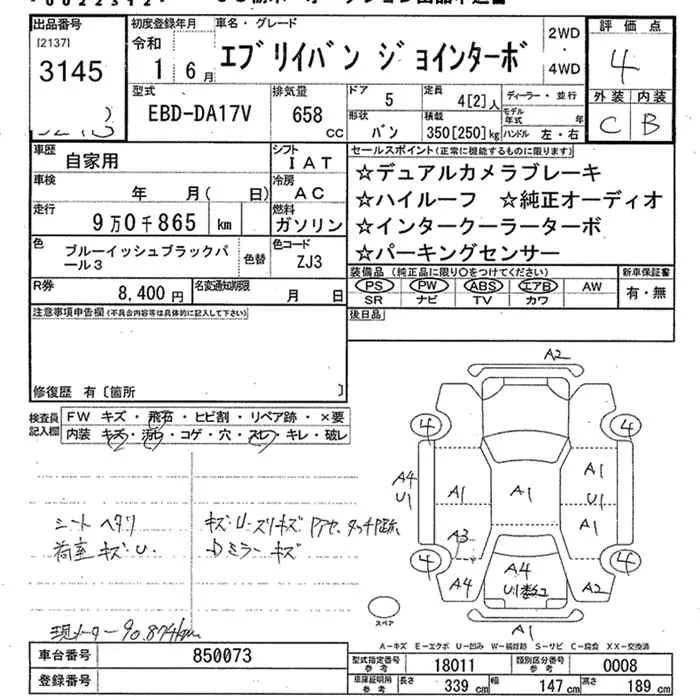 出品番号
[2137]
3145
初度登録年月
令和
1 6月
車名・グレード
エブリイバン ジョインターボ
2WD
・
4WD
評価点
4
外装 内装
C B
型式
EBD-DA17V
排気量
658
CC
ドア
5
定員
4[2]人
形状
バン
積載
350[250]kg
ディーラー・並行
モデル年式 年
ハンドル 左・右
車歴
自家用
シフト
IAT
車検
年 月( 日)
冷房
AC
走行
9万0千865 km
燃料
ガソリン
色
ブルーイッシュブラックパール3
色替
色コード
ZJ3
R券
8,400円
名変通知期限
月 日
セールスポイント(正常に機能するものに限ります)
☆デュアルカメラブレーキ
☆ハイルーフ ☆純正オーディオ
☆インタークーラーターボ
☆パーキングセンサー
装備品(純正品に限り○をつけてください)
PS PW ABS エアB AW
SR ナビ TV カワ
新車保証書
有・無
後日品
注意事項申告欄(不具合内容等は具体的に記入して下さい)
修復歴 有〔箇所 〕
検査員記入欄
FW キズ・飛石・ヒビ割・リペア跡・×要
内装 キズ・汚れ・コゲ・穴・スレ・キレ・破レ
シート ヘタリ
荷室 キズ・U.
キズ・U・スリキズ
Dミラー キズ
現メーター 90.874km
A2
4
4
A4
U1
A1
A1
A1
U1
A1
A3
4
4
A4
A4
A2
A1
スペア
A-キズ E-エクボ U-凹み W-補修跡 S-サビ C-腐食 XX-交換済
車台番号
850073
登録番号
型式指定番号
参考
18011
類別区分番号
参考
0008
車庫証明用
参考
長さ 339cm 幅 147cm 高さ 189cm